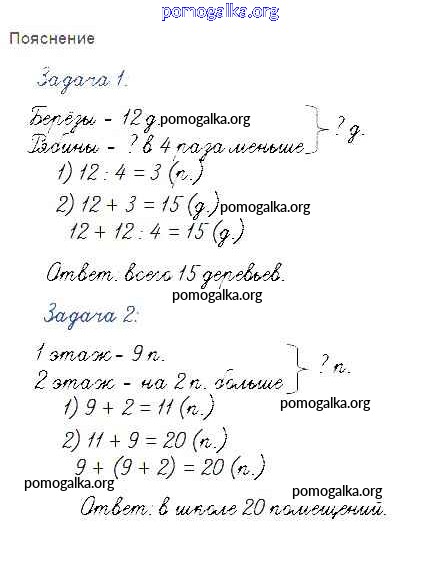 pomogalka.org
Пояснение
Задача 1:
Берёзы - 12 д. pomogalka.org
Рябины - ? в 4 раза меньше } ? д.
1) 12 : 4 = 3 (р.)
2) 12 + 3 = 15 (д.) pomogalka.org
12 + 12 : 4 = 15 (д.)
Ответ: всего 15 деревьев.
pomogalka.org
Задача 2:
1 этаж - 9 п.
2 этаж - на 2 п. больше } ? п.
pomogalka.org
1) 9 + 2 = 11 (п.)
2) 11 + 9 = 20 (п.)
9 + (9 + 2) = 20 (п.)
pomogalka.org
pomogalka.org
Ответ: в школе 20 помещений.